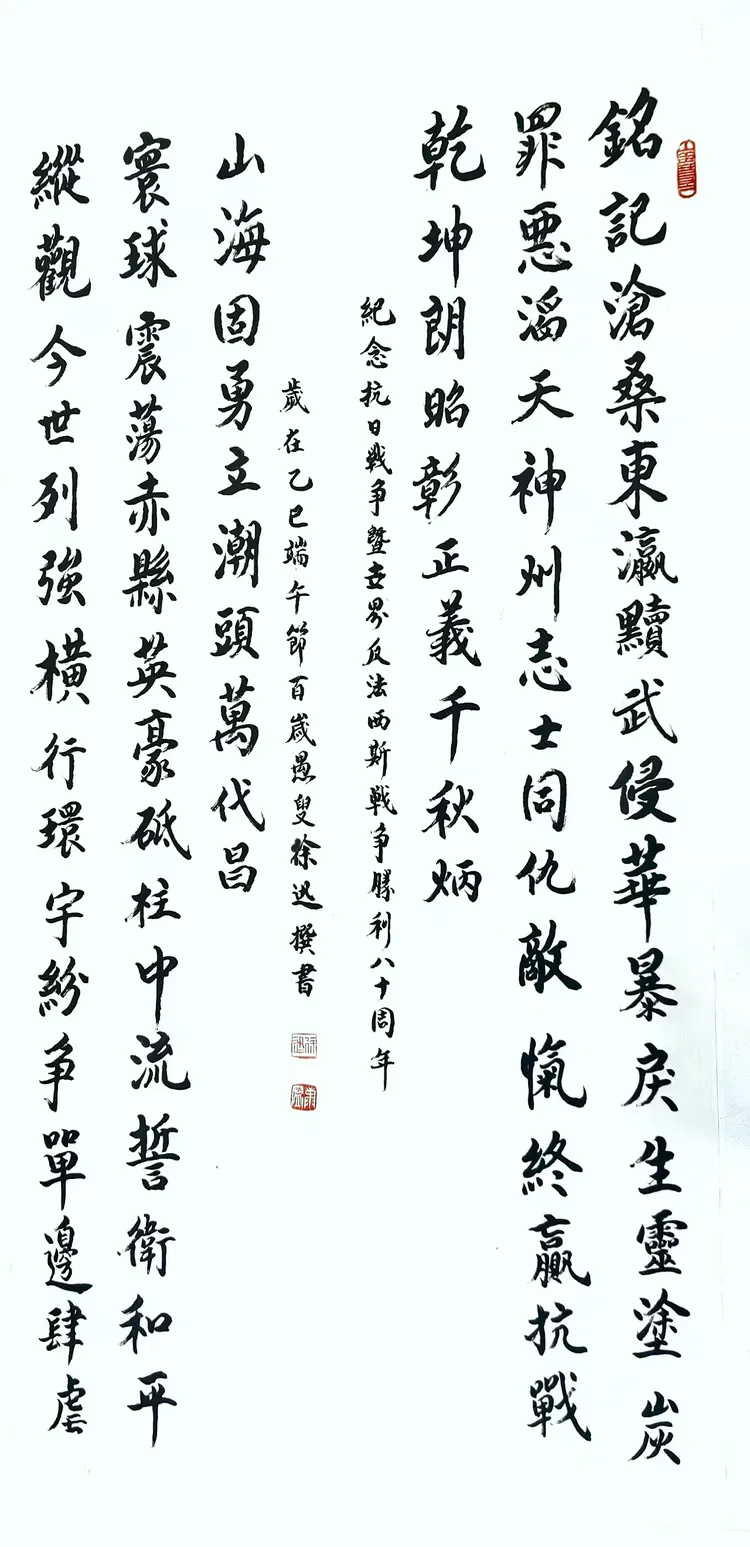 銘記滄桑東瀛黷武侵華暴戾生靈塗炭
罪惡滔天神州志士同仇敵愾終贏抗戰
乾坤朗昭彰正義千秋炳
紀念抗日戰争暨世界反法西斯戰争勝利八十周年
縱觀今世列強橫行環宇紛争單邊肆虐
寰球震蕩赤縣英豪砥柱中流誓衛和平
山海固勇立潮頭萬代昌
歲在乙巳端午節百歲愚叟徐迅撰書